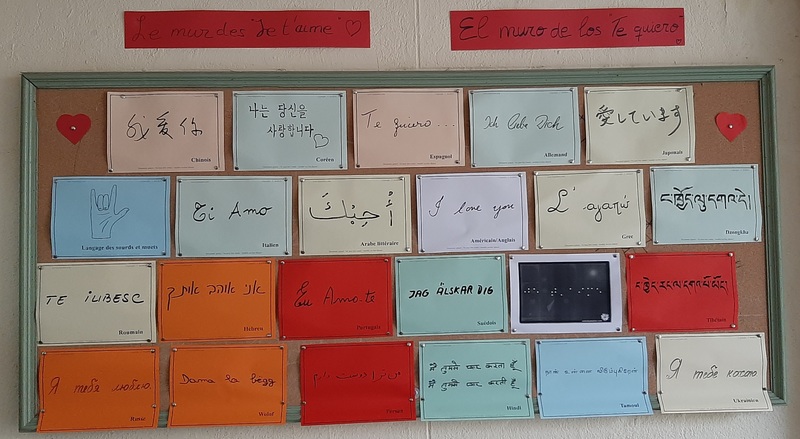 Le mur des "Je t'aime" ♡
El muro de los "Te quiero"
我爱你
Chinois
나는 당신을
사랑합니다
Coréen
Te quiero...
Espagnol
Ich liebe Dich
Allemand
愛しています
Japonais
Langage des sourds et muets
Ti Amo
Italien
أُحِبُّكَ
Arabe littéraire
I love you
Américain/Anglais
Σ' αγαπώ
Grec
Dzongkha
TE IUBESC
Roumain
אני אוהב אותך
Hébreu
Eu Amo-te
Portugais
JAG ÄLSKAR DIG
Suédois
Tibétain
Я тебя люблю
Russe
Dama la begg
Wolof
من ترا دوست دارم
Persan
मैं तुमसे प्यार करता हूँ
मैं तुमसे प्यार करती हूँ
Hindi
நான் உன்னை விரும்புகிறேன்
Tamoul
Я тебе кохаю
Ukrainien